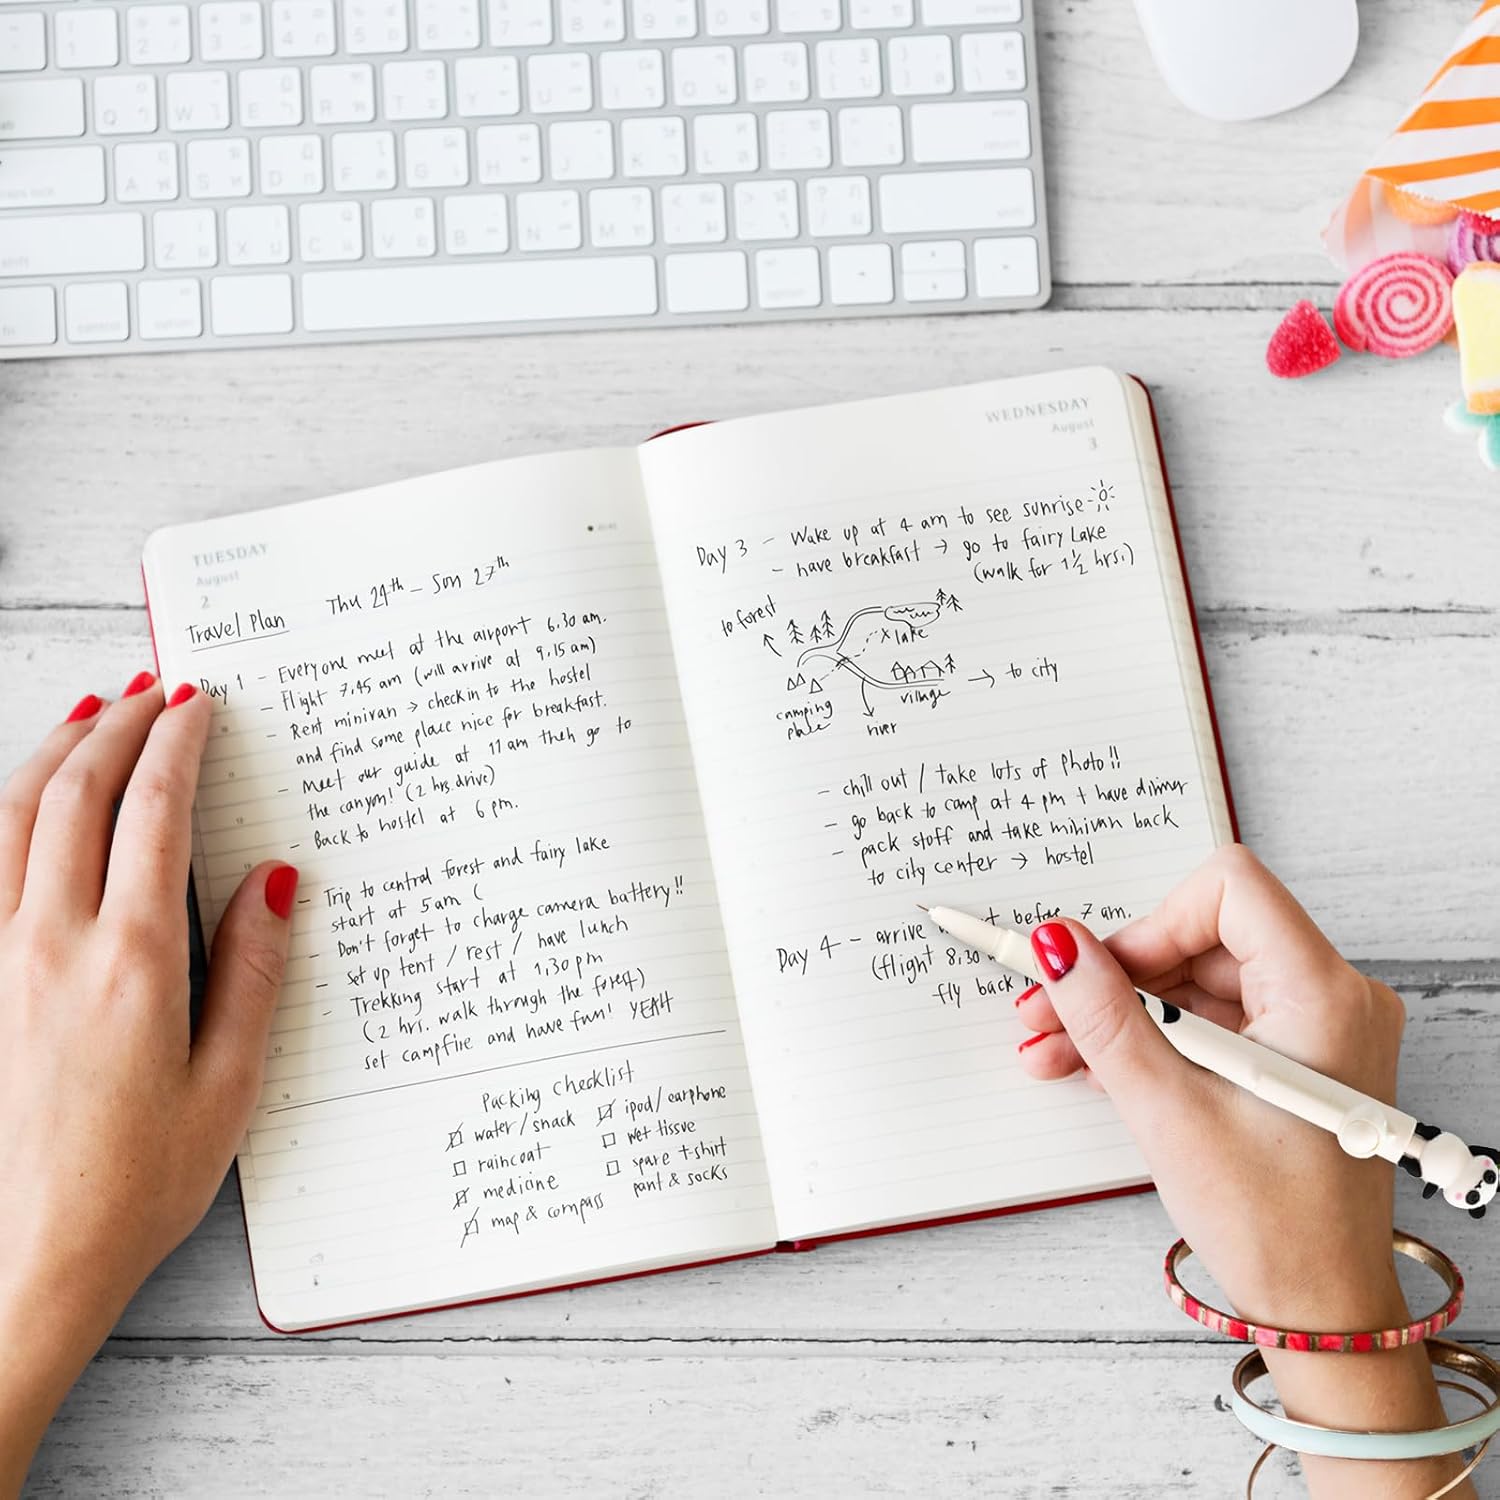 TUESDAY
August
2
Travel Plan Thu 24th - Sun 27th
Day 1 - Everyone meet at the airport 6.30 am.
- Flight 7.45 am (will arrive at 9.15 am)
- Rent minivan → check in to the hostel
and find some place nice for breakfast.
- Meet our guide at 11 am then go to
the canyon! (2 hrs. drive)
- Back to hostel at 6 pm.
- Trip to central forest and fairy lake
start at 5am (
- Don't forget to charge camera battery!!
- set up tent / rest / have lunch
- Trekking start at 1.30 pm
(2 hrs. walk through the forest)
set campfire and have fun! YEAH
Packing Checklist
water/snack
raincoat
medicine
map & compass
ipod/earphone
wet tissue
spare t-shirt
pant & socks
WEDNESDAY
August
3
Day 3 - Wake up at 4 am to see sunrise -
- have breakfast → go to fairy Lake
(walk for 1½ hrs.)
to forest
x lake
camping
place
village
→ to city
river
- chill out / take lots of photo!!
- go back to camp at 4 pm + have dinner
- pack stuff and take minivan back
to city center → hostel
Day 4 - arrive before 7 am.
(flight 8.30
fly back
Q
W
E
R
T
Y
U
I
O
P
A
S
D
F
G
H
J
K
L
Z
X
C
V
B
N
M